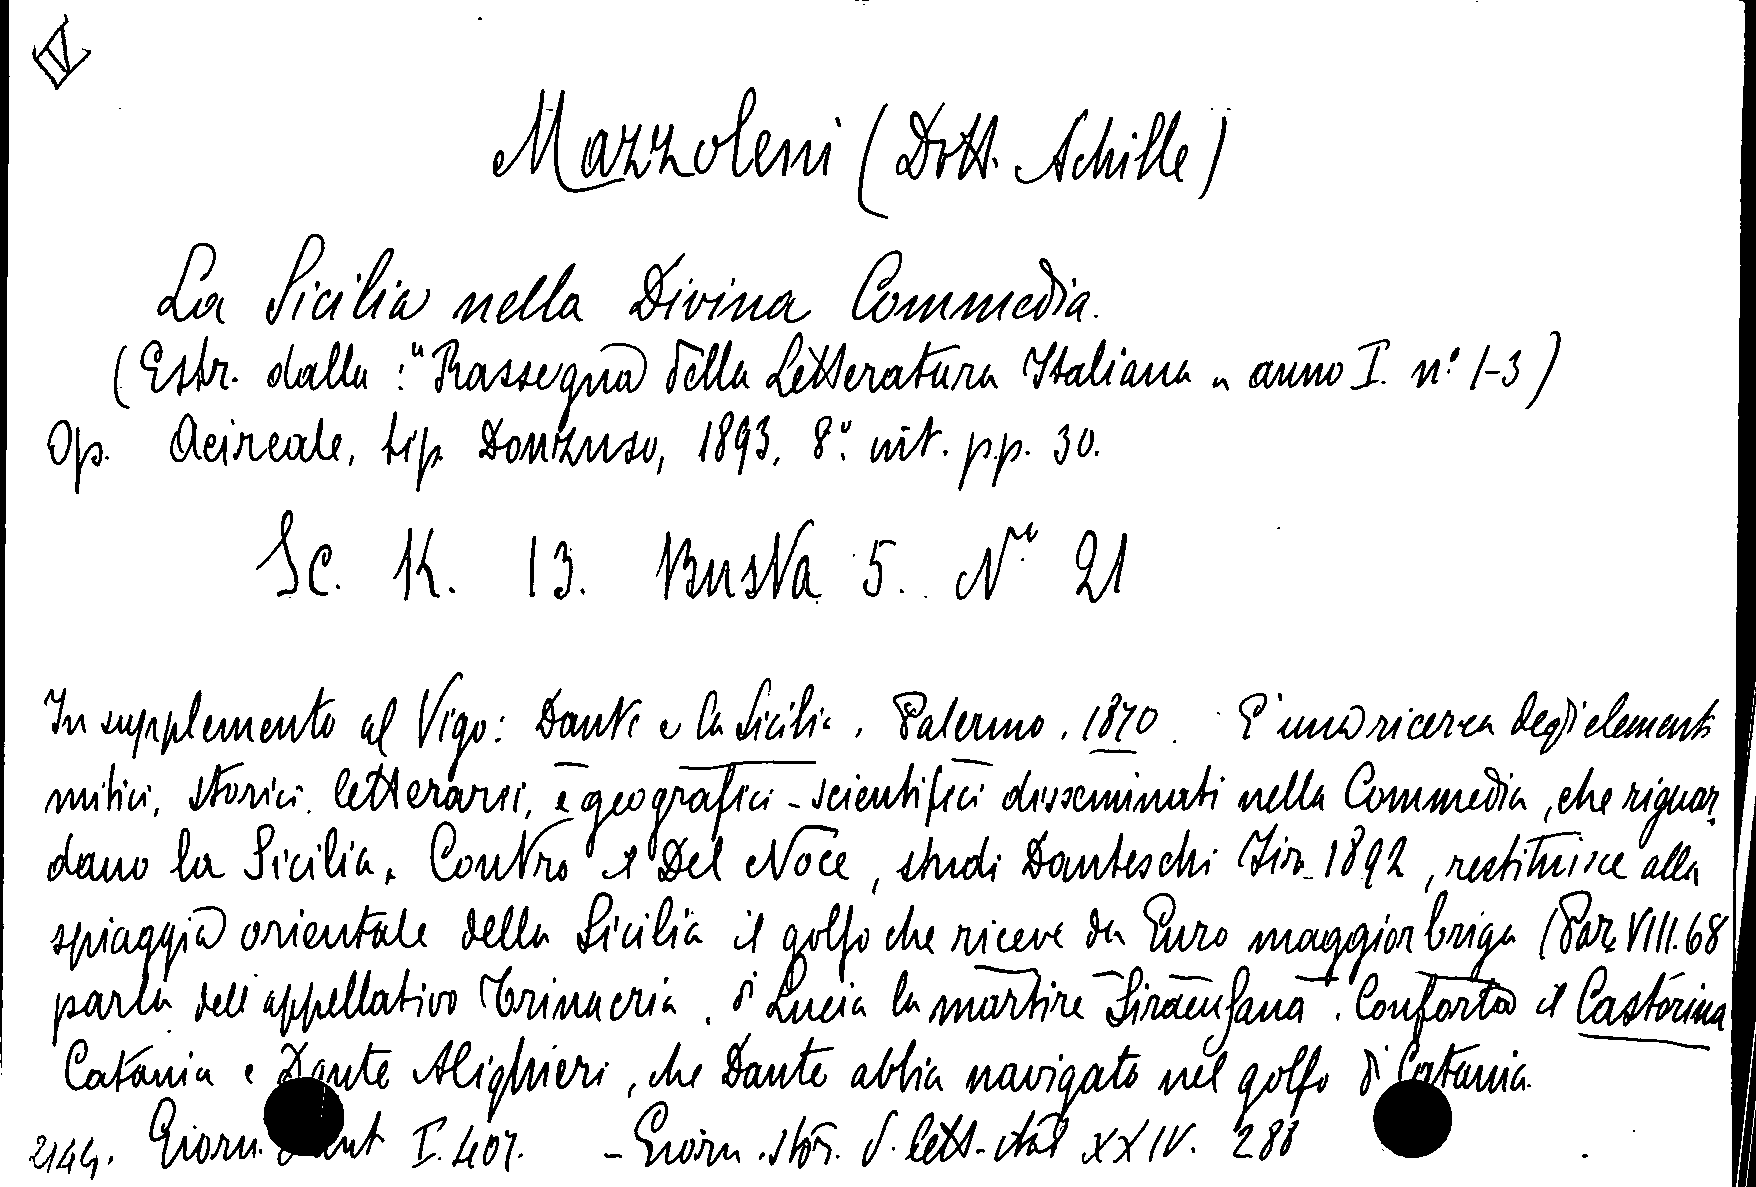 IV
Mazzoleni (Dott. Achille)
La Sicilia nella Divina Commedia.
(Estr. dalla: "Rassegna della Letteratura Italiana" anno I. n° 1-3)
Op. Acireale, tip. Donzuso, 1893, 8° int. pp. 30.
Sc. K. 13. Busta 5. N° 21
In supplemento al Vigo: Dante e la Sicilia. Palermo. 1870. E' una ricerca degli elementi
mitici, storici, letterarii, e geografici-scientifici disseminati nella Commedia, che riguar-
dano la Sicilia. Contro il Del Noce, studi Danteschi 1892, restituisce alla
spiaggia orientale della Sicilia il golfo che riceve da Euro maggior briga (Par. VIII. 68
parla dell'appellativo Trinacria, di Lucia la martire Siracusana. Conforta il Castorina
Catania e Dante Alighieri, che Dante abbia navigato nel golfo di Catania.
2144. Giorn. I. 407. - Giorn. stor. d. lett. ital XXIV. 288